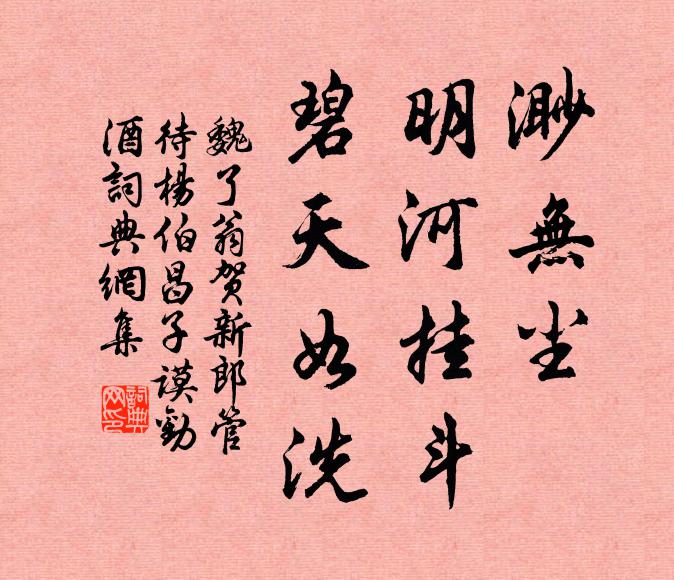 渺無尘
明河挂斗
碧天如洗
魏了翁贺新郎管
待楊伯昌子謨勸
酒詞典網集
詞典
网印